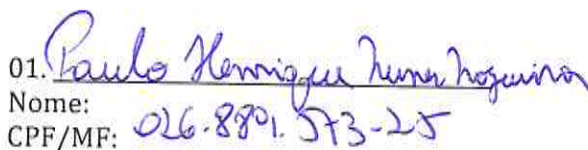 01. Paulo Henrique Nunes Nogueira
Nome:
CPF/MF: 026.881.573-25